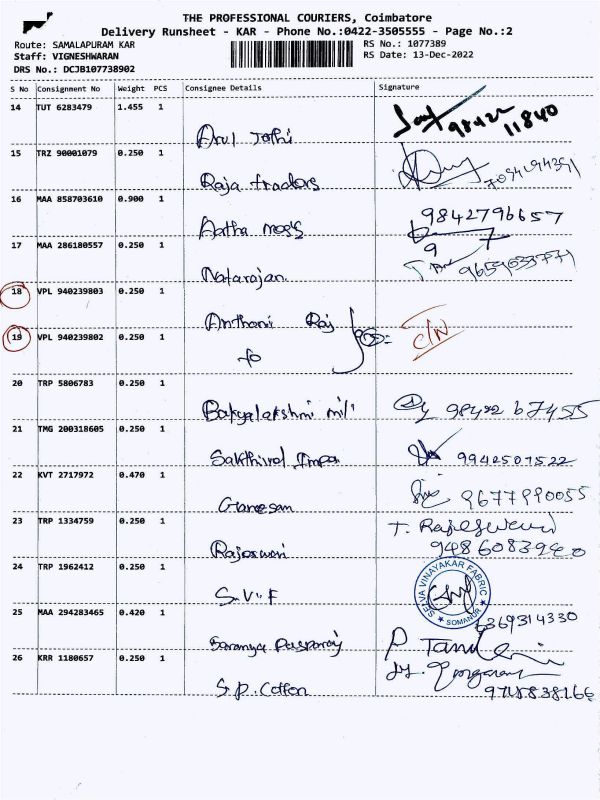 THE PROFESSIONAL COURIERS, Coimbatore
Delivery Runsheet - KAR - Phone No.:0422-3505555 - Page No.:2
Route: SAMALAPURAM KAR
Staff: VIGNESHWARAN
DRS No.: DCJB107738902
RS No.: 1077389
RS Date: 13-Dec-2022
S No Consignment No Weight PCS Consignee Details Signature
14 TUT 6283479 1.455 1
Arul Jothi 98422 11840
15 TRZ 90001079 0.250 1
Raja traders
16 MAA 858703610 0.900 1
Aatha 9842796657
17 MAA 286180557 0.250 1
Natarajan
18 VPL 940239803 0.250 1
Anthoni Raj
19 VPL 940239802 0.250 1
C/N
20 TRP 5806783 0.250 1
Bakyalakshmi mill 98422 67455
21 TMG 200318605 0.250 1
Sakthivel Impex 9942507522
22 KVT 2717972 0.470 1
Ganesan 9677990055
23 TRP 1334759 0.250 1
Rajeswari T. Rajeswari
24 TRP 1962412 0.250 1
S.V.F
SELVA VINAYAKAR FABRIC
SOMANUR
6369314330
25 MAA 294283465 0.420 1
Saranya
26 KRR 1180657 0.250 1
S.P. Cotton